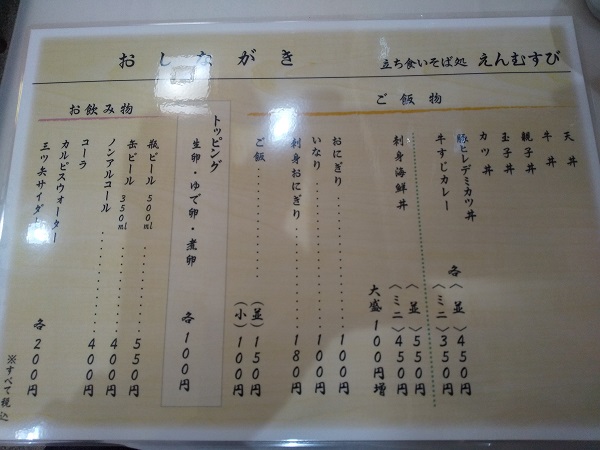 おしながき
立ち食いそば処 えんむすび
ご飯物
天丼
牛丼
親子丼
玉子丼
カツ丼
豚ヒレデミカツ丼
牛すじカレー
各〈並〉450円
〈ミニ〉350円
刺身海鮮丼
〈並〉550円
〈ミニ〉450円
大盛100円増
おにぎり……100円
いなり……100円
刺身おにぎり……180円
ご飯……(並)150円
(小)100円
トッピング
生卵・ゆで卵・煮卵 各100円
お飲み物
瓶ビール 500ml……550円
缶ビール 350ml……400円
ノンアルコール……400円
コーラ
カルピスウォーター
三ツ矢サイダー 各200円
※すべて税込